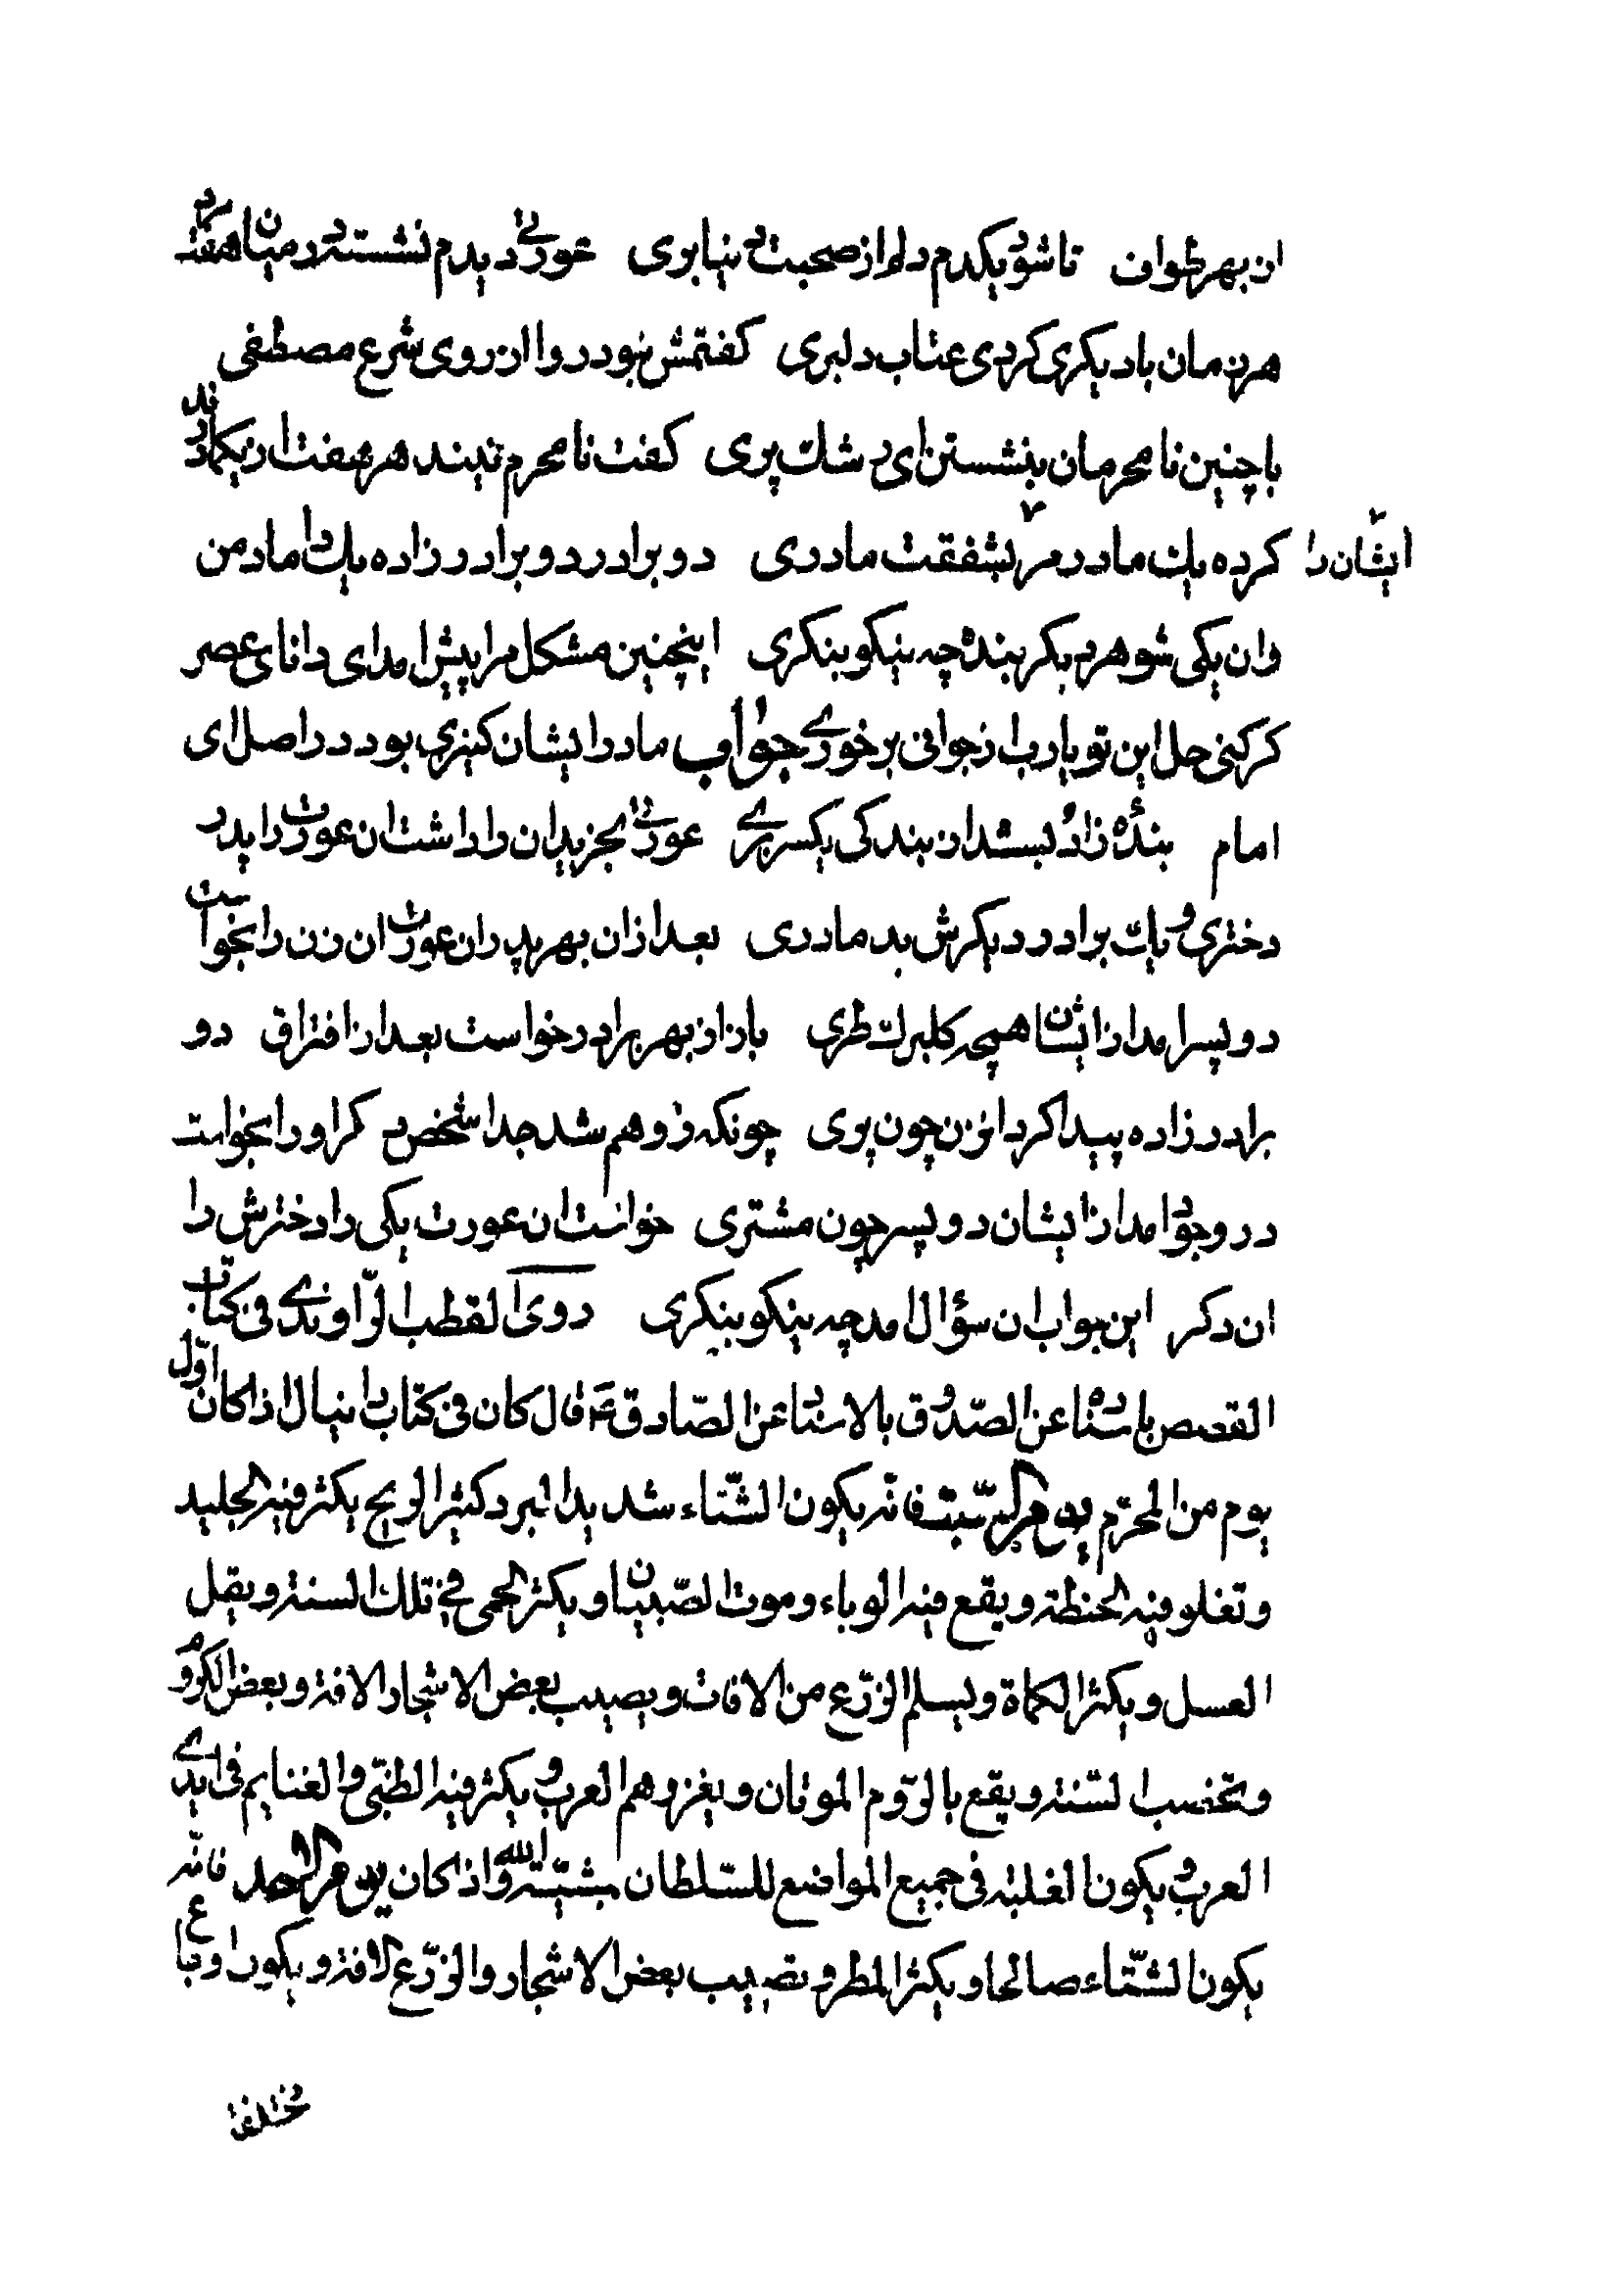 از بهر طواف تا شود یکدم دلم از صحبت غم بری عورتی دیدم نشسته در میان هفت مرد
هر زمان با دیکری کردی عتاب دلبری کفتمش نبود روا از روی شرع مصطفی
با چنین نامحرمان بنشستن ای رشك پری کفت نامحرم نیند هر هفت از یکمادرند
ایشان را کرده یك مادر مر بشفقت مادری دو برادر دو برادر زاده یك داماد من
وان یکی شوهر بکر بنده چه نیکو بنکری اینچنین مشکل مرا پیش امد ای دانای عصر
کر کنی حل این تو یارب از جوانی برخوری جواب مادر ایشان کنیزی بود در اصل ای
امام بندۀ زاد شد از بندکی یکسر بری عورتی بخرید ان را داشت ان عورت را پدر
دختری و یك برادر دیکرش بد مادری بعد ازان بهر پدر ان عورت ان زن را بخواست
دو پسر امد از ایشان همچو کلبرك طری باز از بهر برادر خواست بعد از افتراق دو
برادر زاده پیدا کرد از زن چون پری چونکه زو هم شد جدا شخص دکر او را بخواست
در وجود امد از ایشان دو پسر چون مشتری خواست ان عورت یکی را دخترش را
ان دکر این جواب ان سؤال امد چه نیکو بنکری روى القطب الرّاوندي فى كتاب
القصص باسناده عن الصّدوق بالاسناد عن الصّادق ع قال كان فى كتاب دانيال اذا كان اوّل
يوم من المحرّم يوم السّبت فانّه يكون الشّتاء شديد البرد كثير الريح يكثر فيه الجليد
وتغلو فيه الحنطة ويقع فيه الوباء وموت الصّبيان ويكثر الحمى فى تلك السنة ويقل
العسل ويكثر الكماة ويسلم الزّرع من الافات ويصيب بعض الاشجار الافة وبعض الكروم
وتخصب السّنة ويقع بالرّوم الموتان ويغزوهم العرب ويكثر فيه السّبى والغنايم فى ايدي
العرب ويكون الغلبة فى جميع المواضع للسّلطان بمشيّة الله واذا كان يوم الاحد فانّه
يكون الشّتاء صالحا ويكثر المطر وتصيب بعض الاشجار والزّرع الافة ويكون اوجاع
مختلفة